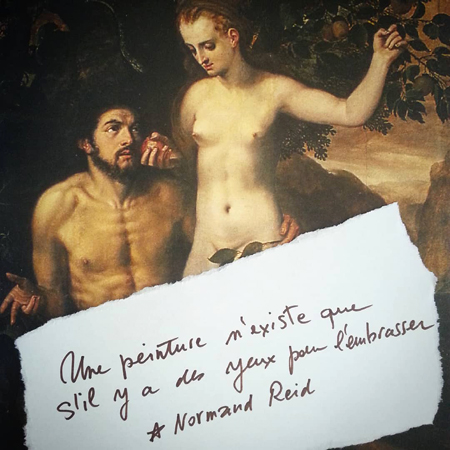 Une peinture n'existe que
s'il y a des yeux pour l'embrasser
* Normand Reid